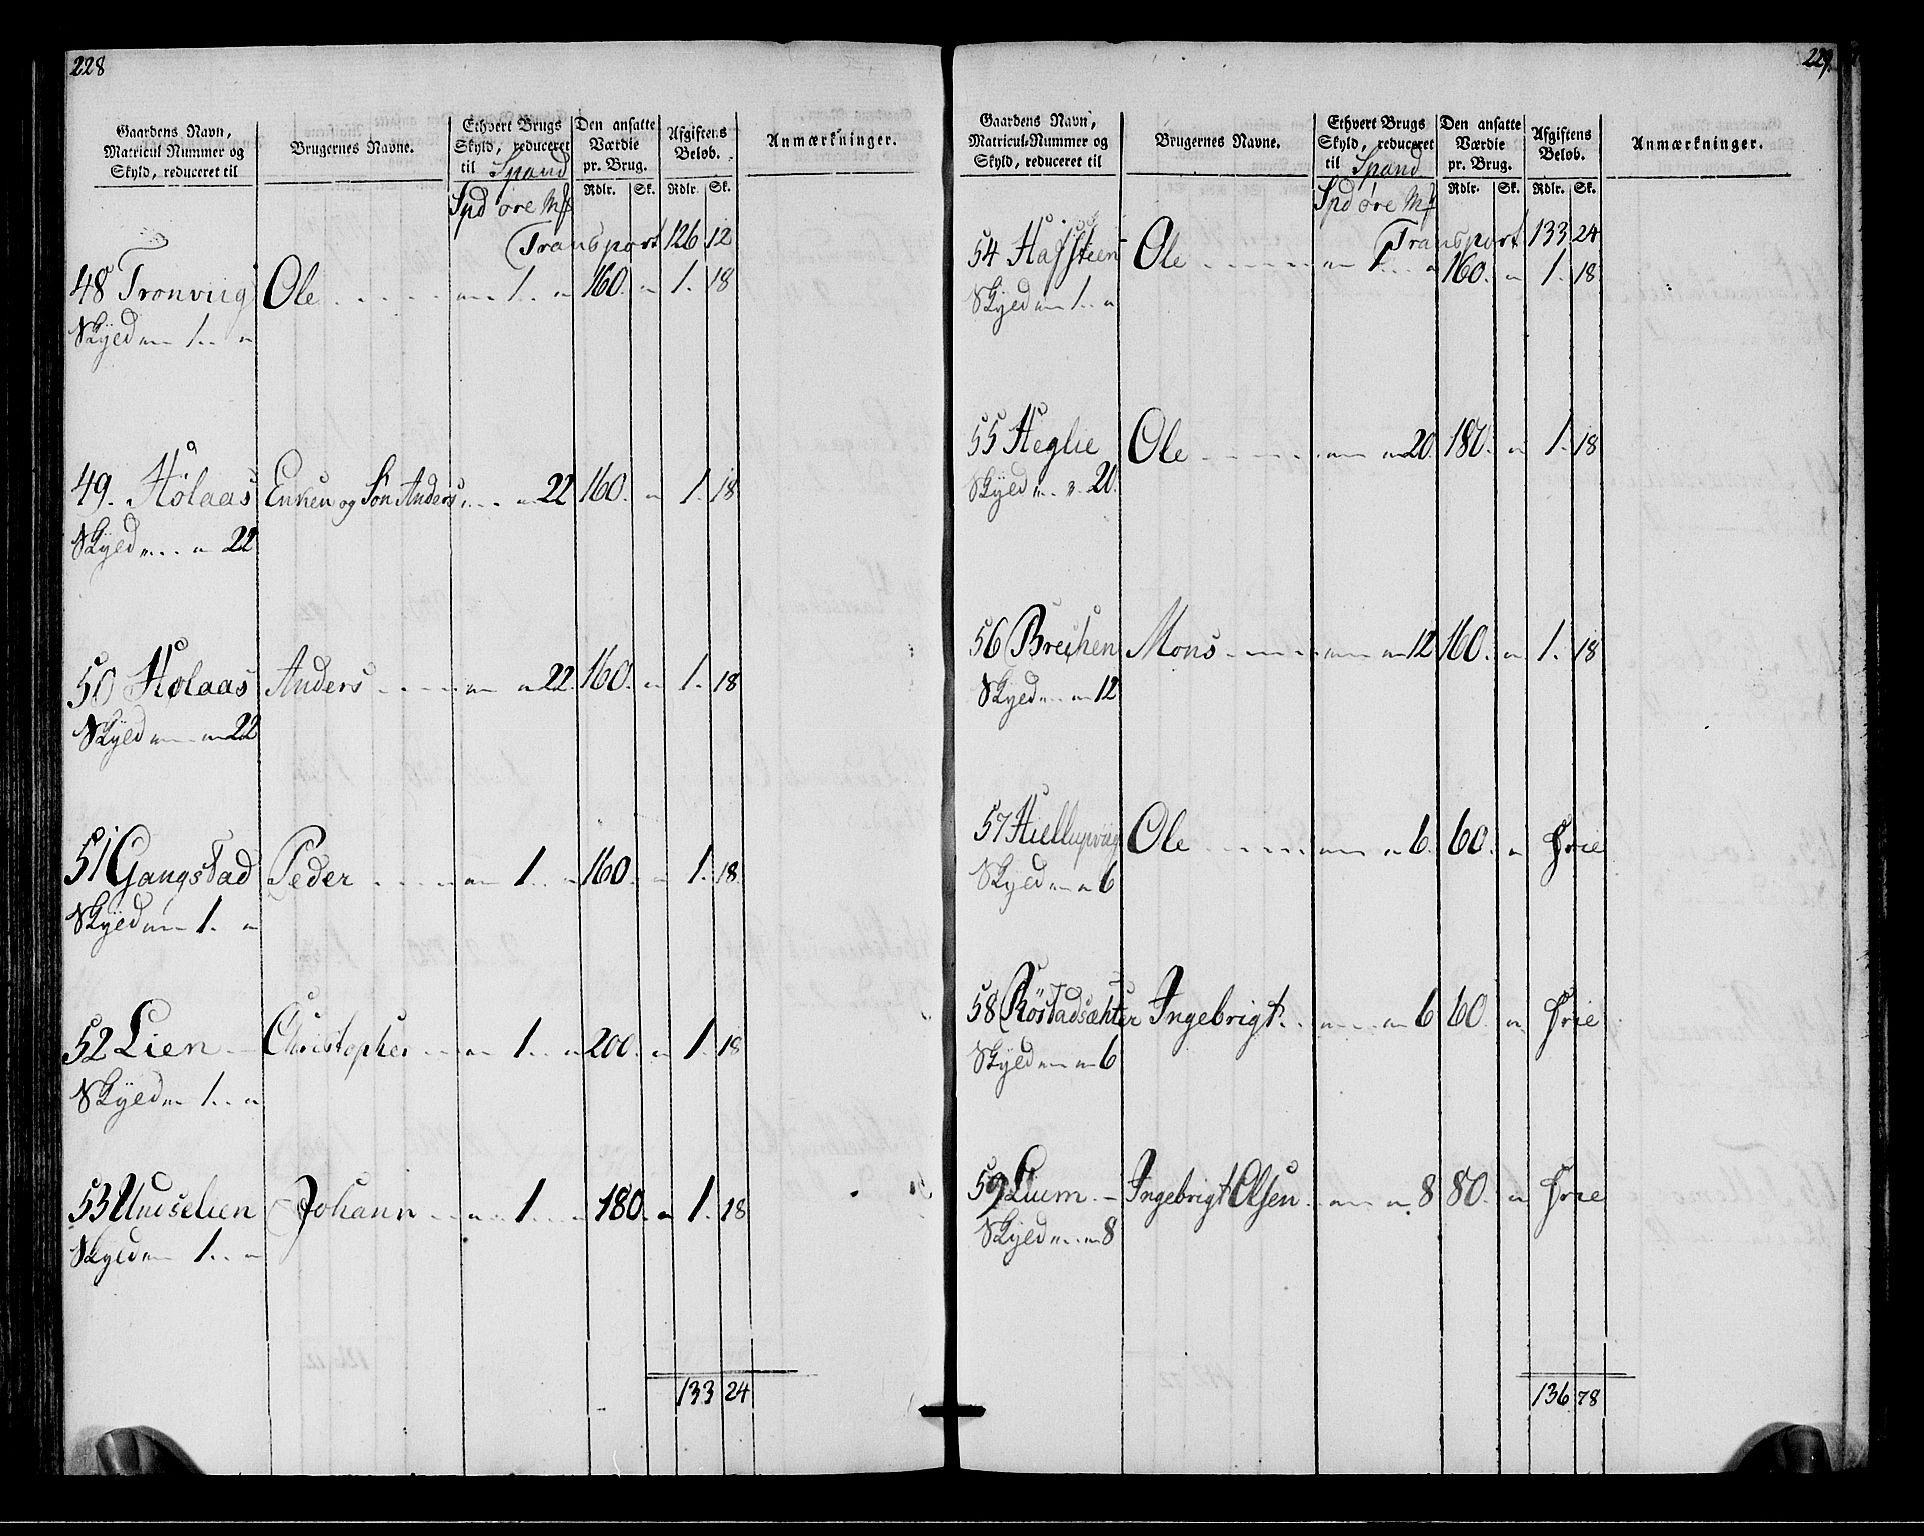 228
Gaardens Navn, Matricul Nummer og Skyld, reduceret til | Brugernes Navne. | Ethvert Brugs Skyld, reduceret til Spand | Den ansatte Værdie pr. Brug. | Afgiftens Beløb. | Anmærkninger.
Spd øre Mk | Rdlr. | Sk. | Rdlr. | Sk.
Transport 126 12
48 Tronviig | Ole . . . . . „ 1. . „ | 160. „ | 1. 18
Skyld „ 1. . „
49. Hølaas | Enken og Søn Anders, . . „ 22 | 160. „ | 1. 18
Skyld „ . . „ 22
50 Hølaas | Anders . . . . „ „ 22. | 160. „ | 1. 18
Skyld „ „ 22
51 Gangstad | Peder . . . . „ 1. . „ | 160. „ | 1. 18.
Skyld „ 1. „
52 Lien | Christopher . . „ 1. . „ | 200. „ | 1. 18
Skyld „ 1. . „
53 | Johann . . „ 1. . . „ | 180. „ | 1. 18
Skyld „ 1. . „
133 24
229.
Gaardens Navn, Matricul-Nummer og Skyld, reduceret til | Brugernes Navne. | Ethvert Brugs Skyld, reduceret til Spand | Den ansatte Værdie pr. Brug. | Afgiftens Beløb. | Anmærkninger.
Spd øre Mk | Rdlr. | Sk. | Rdlr. | Sk.
Transport 133 24
54 Hafsteen | Ole . . . . . „ 1. . „ | 160. „ | 1. 18.
Skyld „ 1. . „
55 Heglie | Ole . . . . . „ „ 20. | 180. „ | 1. 18
Skyld „ . „ . 20.
56 Breihen | Mons . . . . „ „ 12 | 160. „ | 1. 18
Skyld „ . „ 12
57 | Ole . . . . . „ „ 6. | 60. „ | frie
Skyld „ „ 6
58 Röstadsæhter | Ingebrigt . . „ . . „ 6 | 60. „ | frie
Skyld „ „ 6
59 Lium. – | Ingebrigt Olsen . „ „ 8 | 80. „ | frie
Skyld „ . „ 8
136. 78